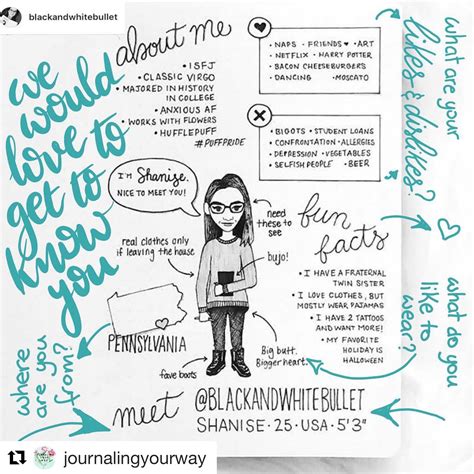 blackandwhitebullet
we would
love to
get to
know
you
about me
• ISFJ
• CLASSIC VIRGO
• MAJORED IN HISTORY
IN COLLEGE
• ANXIOUS AF
• WORKS WITH FLOWERS
• HUFFLEPUFF
#PUFFPRIDE
• NAPS • FRIENDS ♥ • ART
• NETFLIX • HARRY POTTER
• BACON CHEESEBURGERS
• DANCING • MOSCATO
• BIGOTS • STUDENT LOANS
• CONFRONTATION • ALLERGIES
• DEPRESSION • VEGETABLES
• SELFISH PEOPLE • BEER
what are your
likes & dislikes?
I'M Shanise.
NICE TO MEET YOU!
need
these to
see
real clothes only
if leaving the house
bujo!
fun
facts
• I HAVE A FRATERNAL
TWIN SISTER
• I LOVE CLOTHES, BUT
MOSTLY WEAR PAJAMAS
• I HAVE 2 TATTOOS
AND WANT MORE!
• MY FAVORITE
HOLIDAY IS
HALLOWEEN
what do you
like to
wear?
PENNSYLVANIA
where
are you
from?
fave boots
Big butt.
Bigger heart.
meet
@BLACKANDWHITEBULLET
SHANISE • 25 • USA • 5'3"
journalingyourway